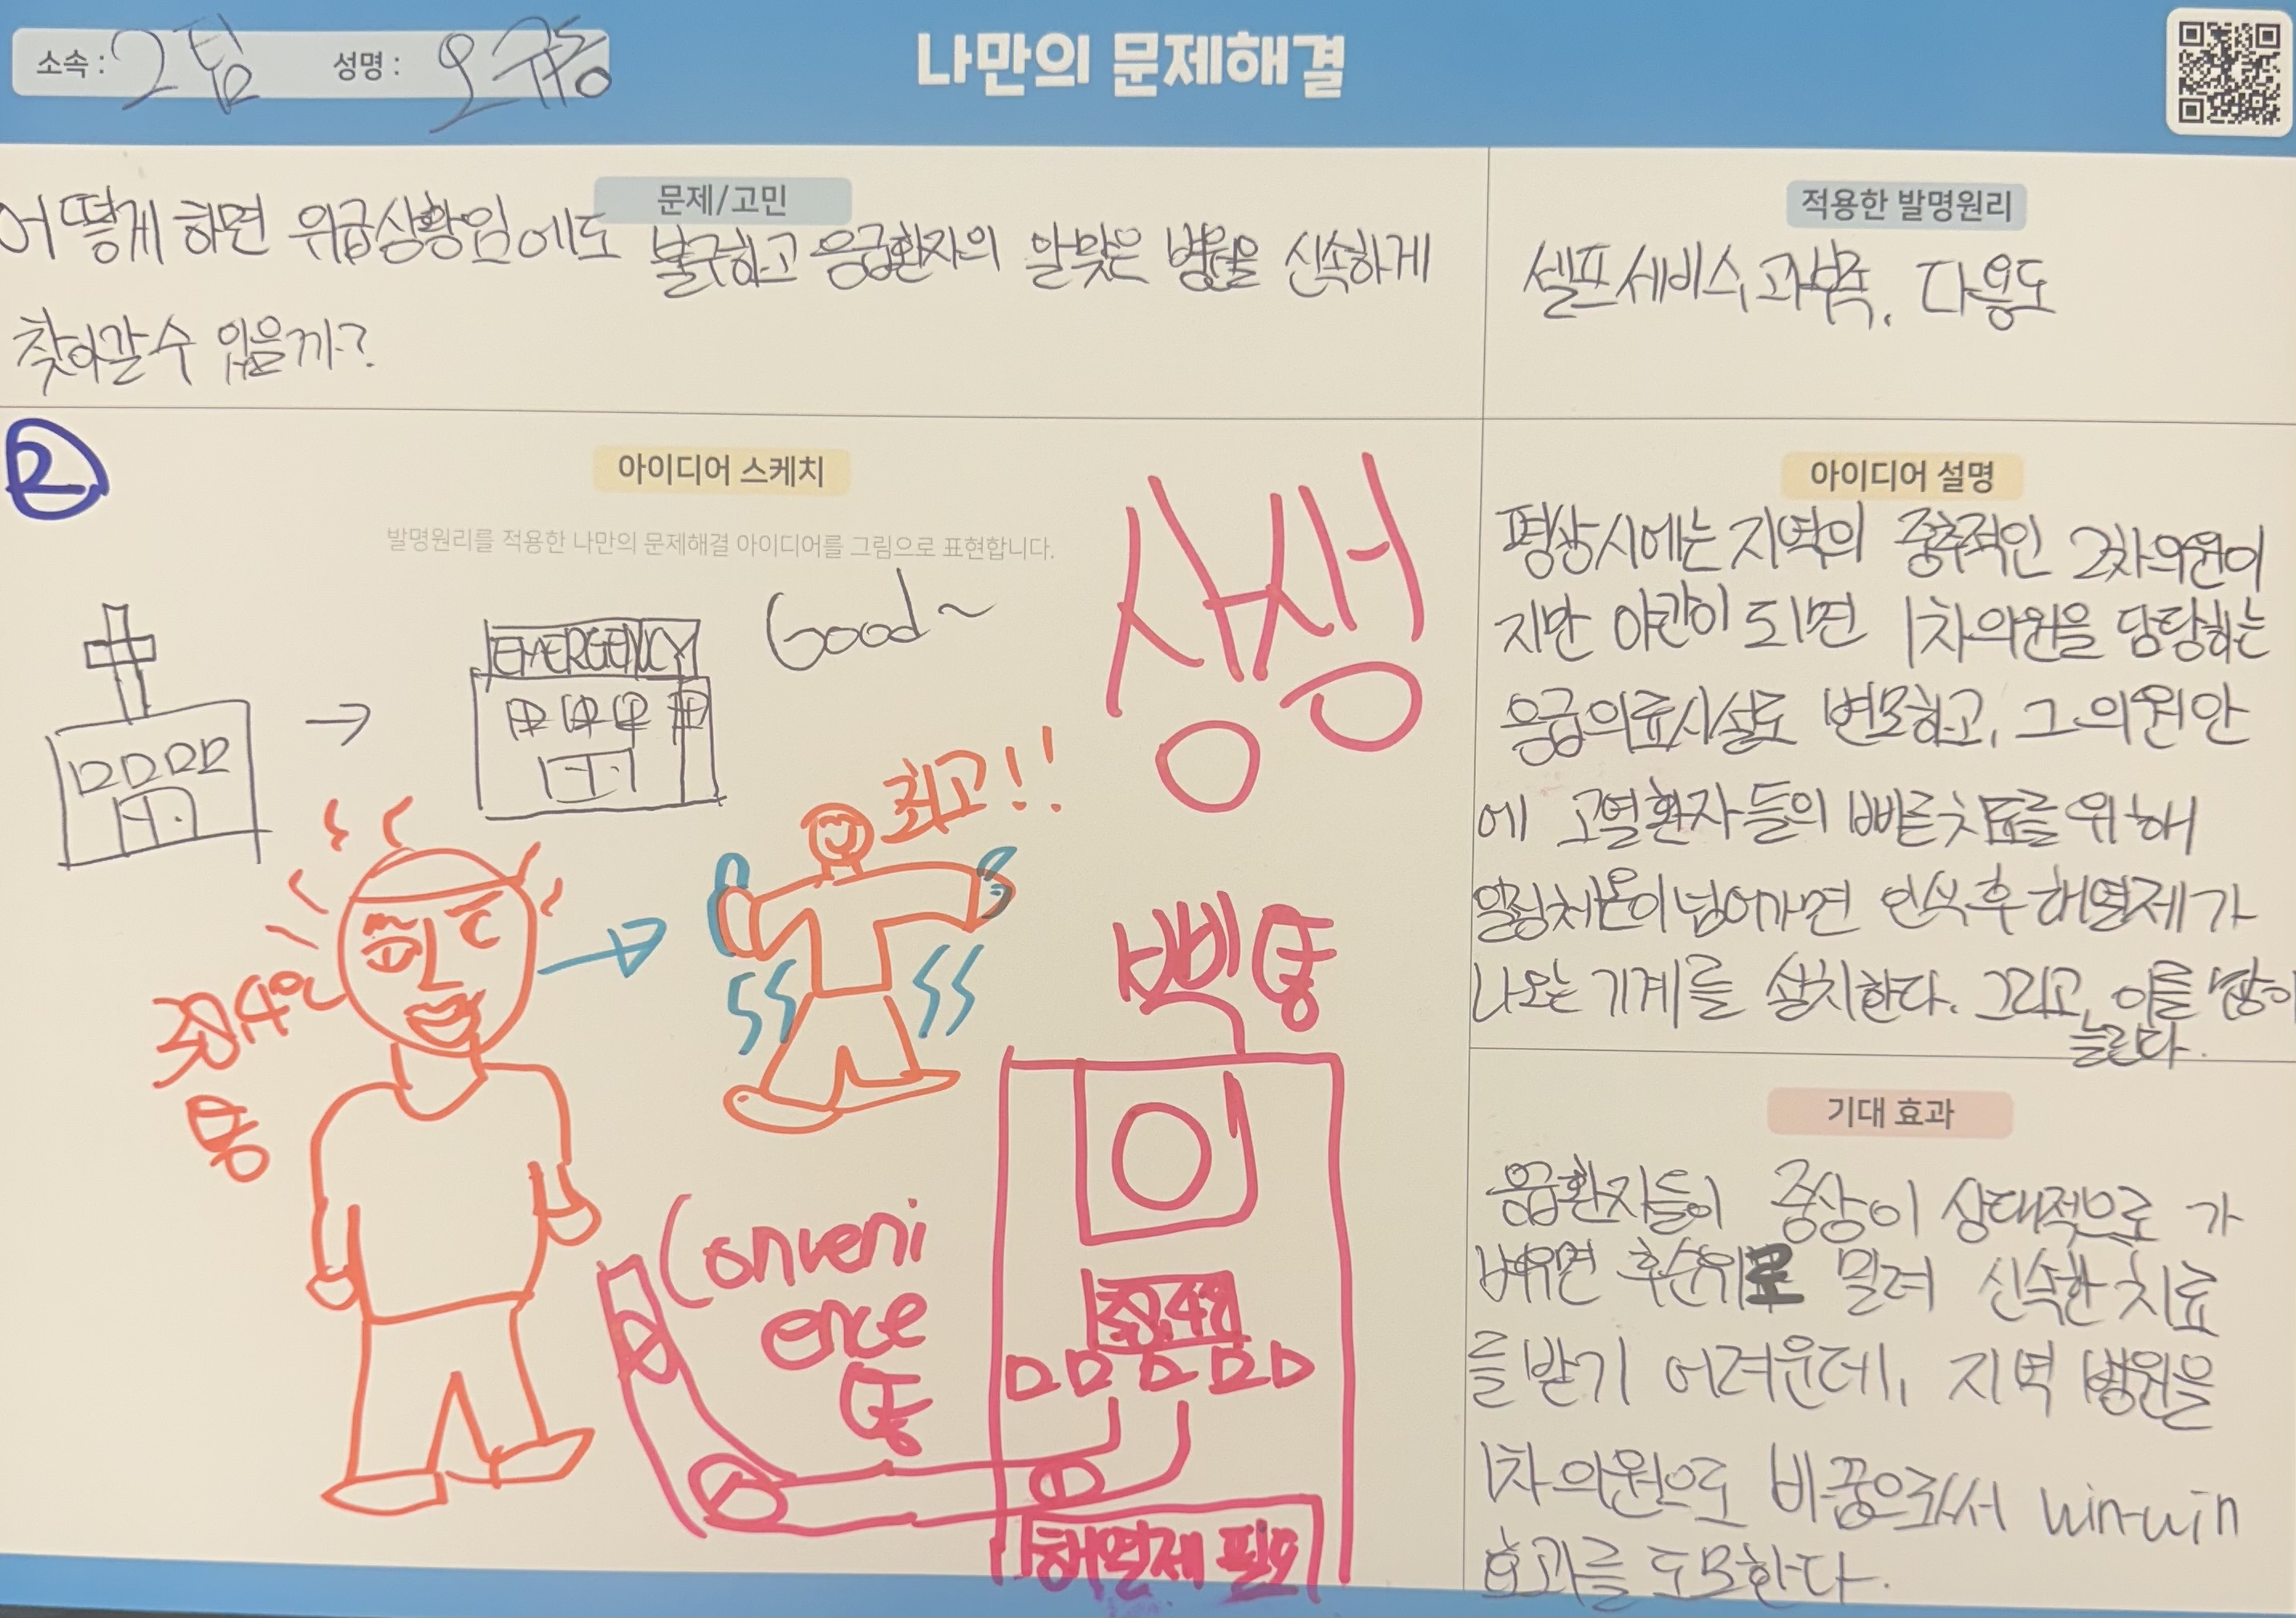 소속 : 2팀 성명 : 오규종
나만의 문제해결
문제/고민
어떻게 하면 위급상황임에도 불구하고 응급환자의 알맞은 병원을 신속하게
찾아갈 수 있을까?
적용한 발명원리
셀프서비스, 과부족, 다용도
2
아이디어 스케치
발명원리를 적용한 나만의 문제해결 아이디어를 그림으로 표현합니다.
Good~
EMERGENCY
상생
최고!!
38.4℃
삐삐
Conveni
ence
38.4℃
해열제 필요
아이디어 설명
평상시에는 지역의 중추적인 2차의원이
지만 야간이 되면 1차의원을 담당하는
응급의료시설로 변모하고, 그 의원 안
에 고열환자들의 빠른 치료를 위해
일정체온이 넘어가면 인식 후 해열제가
나오는 기계를 설치한다. 그리고, 이를 많이
늘린다.
기대 효과
응급환자들이 증상이 상대적으로 가
벼우면 후순위로 밀려 신속한 치료
를 받기 어려운데, 지역 병원을
1차 의원으로 바꿈으로써 win-win
효과를 도모한다.